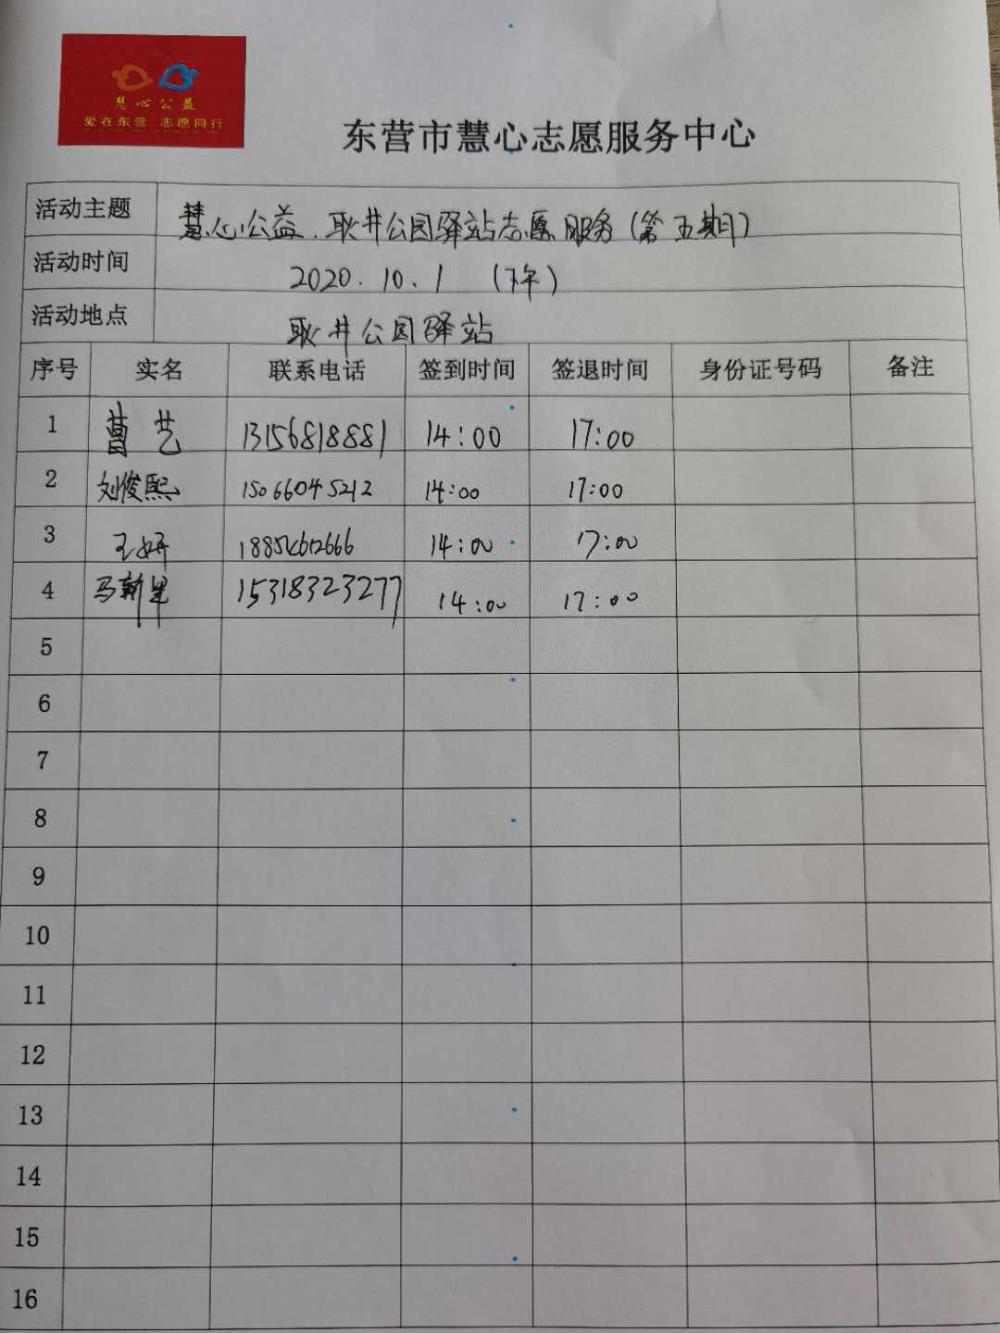 慧心公益
爱在东营 志愿同行
东营市慧心志愿服务中心
活动主题 慧心公益.耿井公园驿站志愿服务(第五期)
活动时间 2020.10.1 (下午)
活动地点 耿井公园驿站
序号 实名 联系电话 签到时间 签退时间 身份证号码 备注
1 曹艺 13156818881 14:00 17:00
2 刘俊熙 15066045212 14:00 17:00
3 王妍 14:00 17:00
4 马新星 15318323277 14:00 17:00
5
6
7
8
9
10
11
12
13
14
15
16